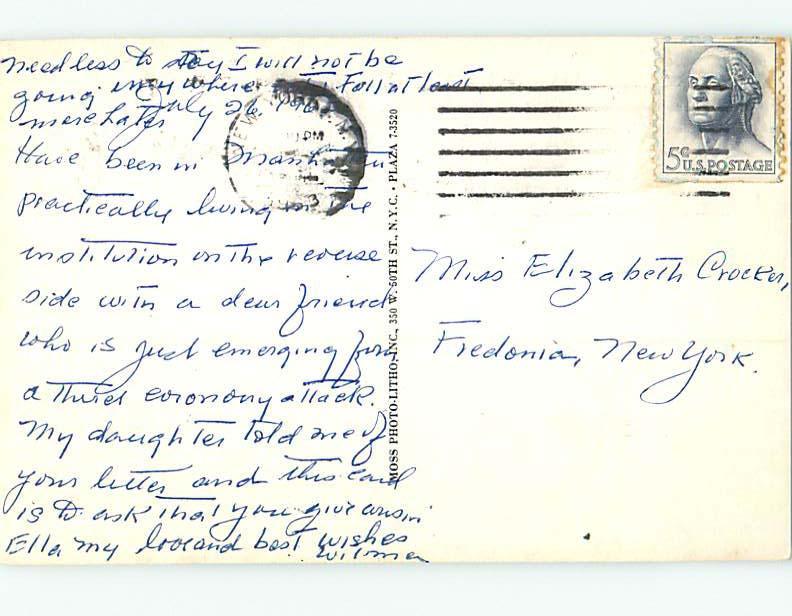 needless to say I will not be
going anywhere til Fall at least
more later July 26, 196
Have been in Manhattan
practically living in the
institution on the reverse
side with a dear friend
who is just emerging from
a third coronary attack.
My daughter told me of
your letter and this card
is to ask that you give cousin
Ella my love and best wishes
Wilma
NEW N.Y.
PM
MOSS PHOTO-LITHO, INC., 350 W. 50TH ST., N.Y.C. - PLAZA 7-3520
5¢ U.S. POSTAGE
Miss Elizabeth Crocker,
Fredonia, New York.